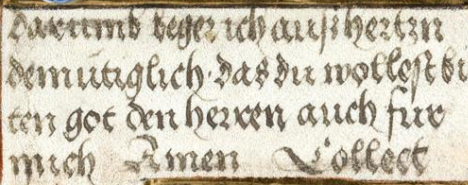 darumb beger ich auß hertzn
demütiglich · das du wollest bi
ten got den herren auch für
mich Amen Collect